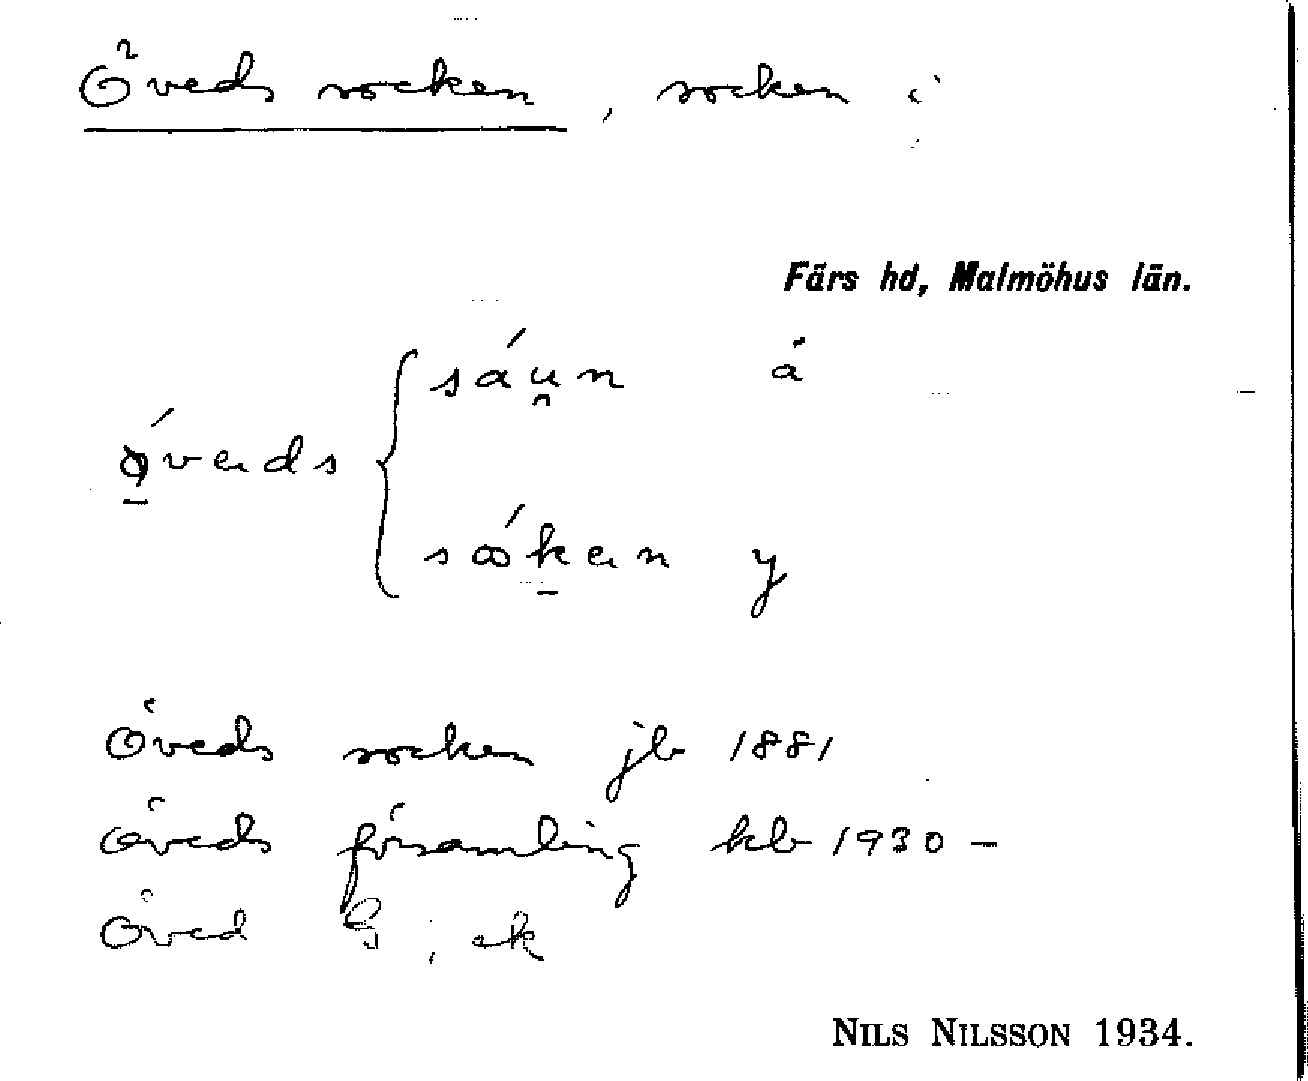 Öveds socken, socken i
Färs hd, Malmöhus län.
sáu̯n å
ǿveds
sóken y
Öveds socken jb 1881
Öveds församling kb 1930 –
Öved G, ek
NILS NILSSON 1934.